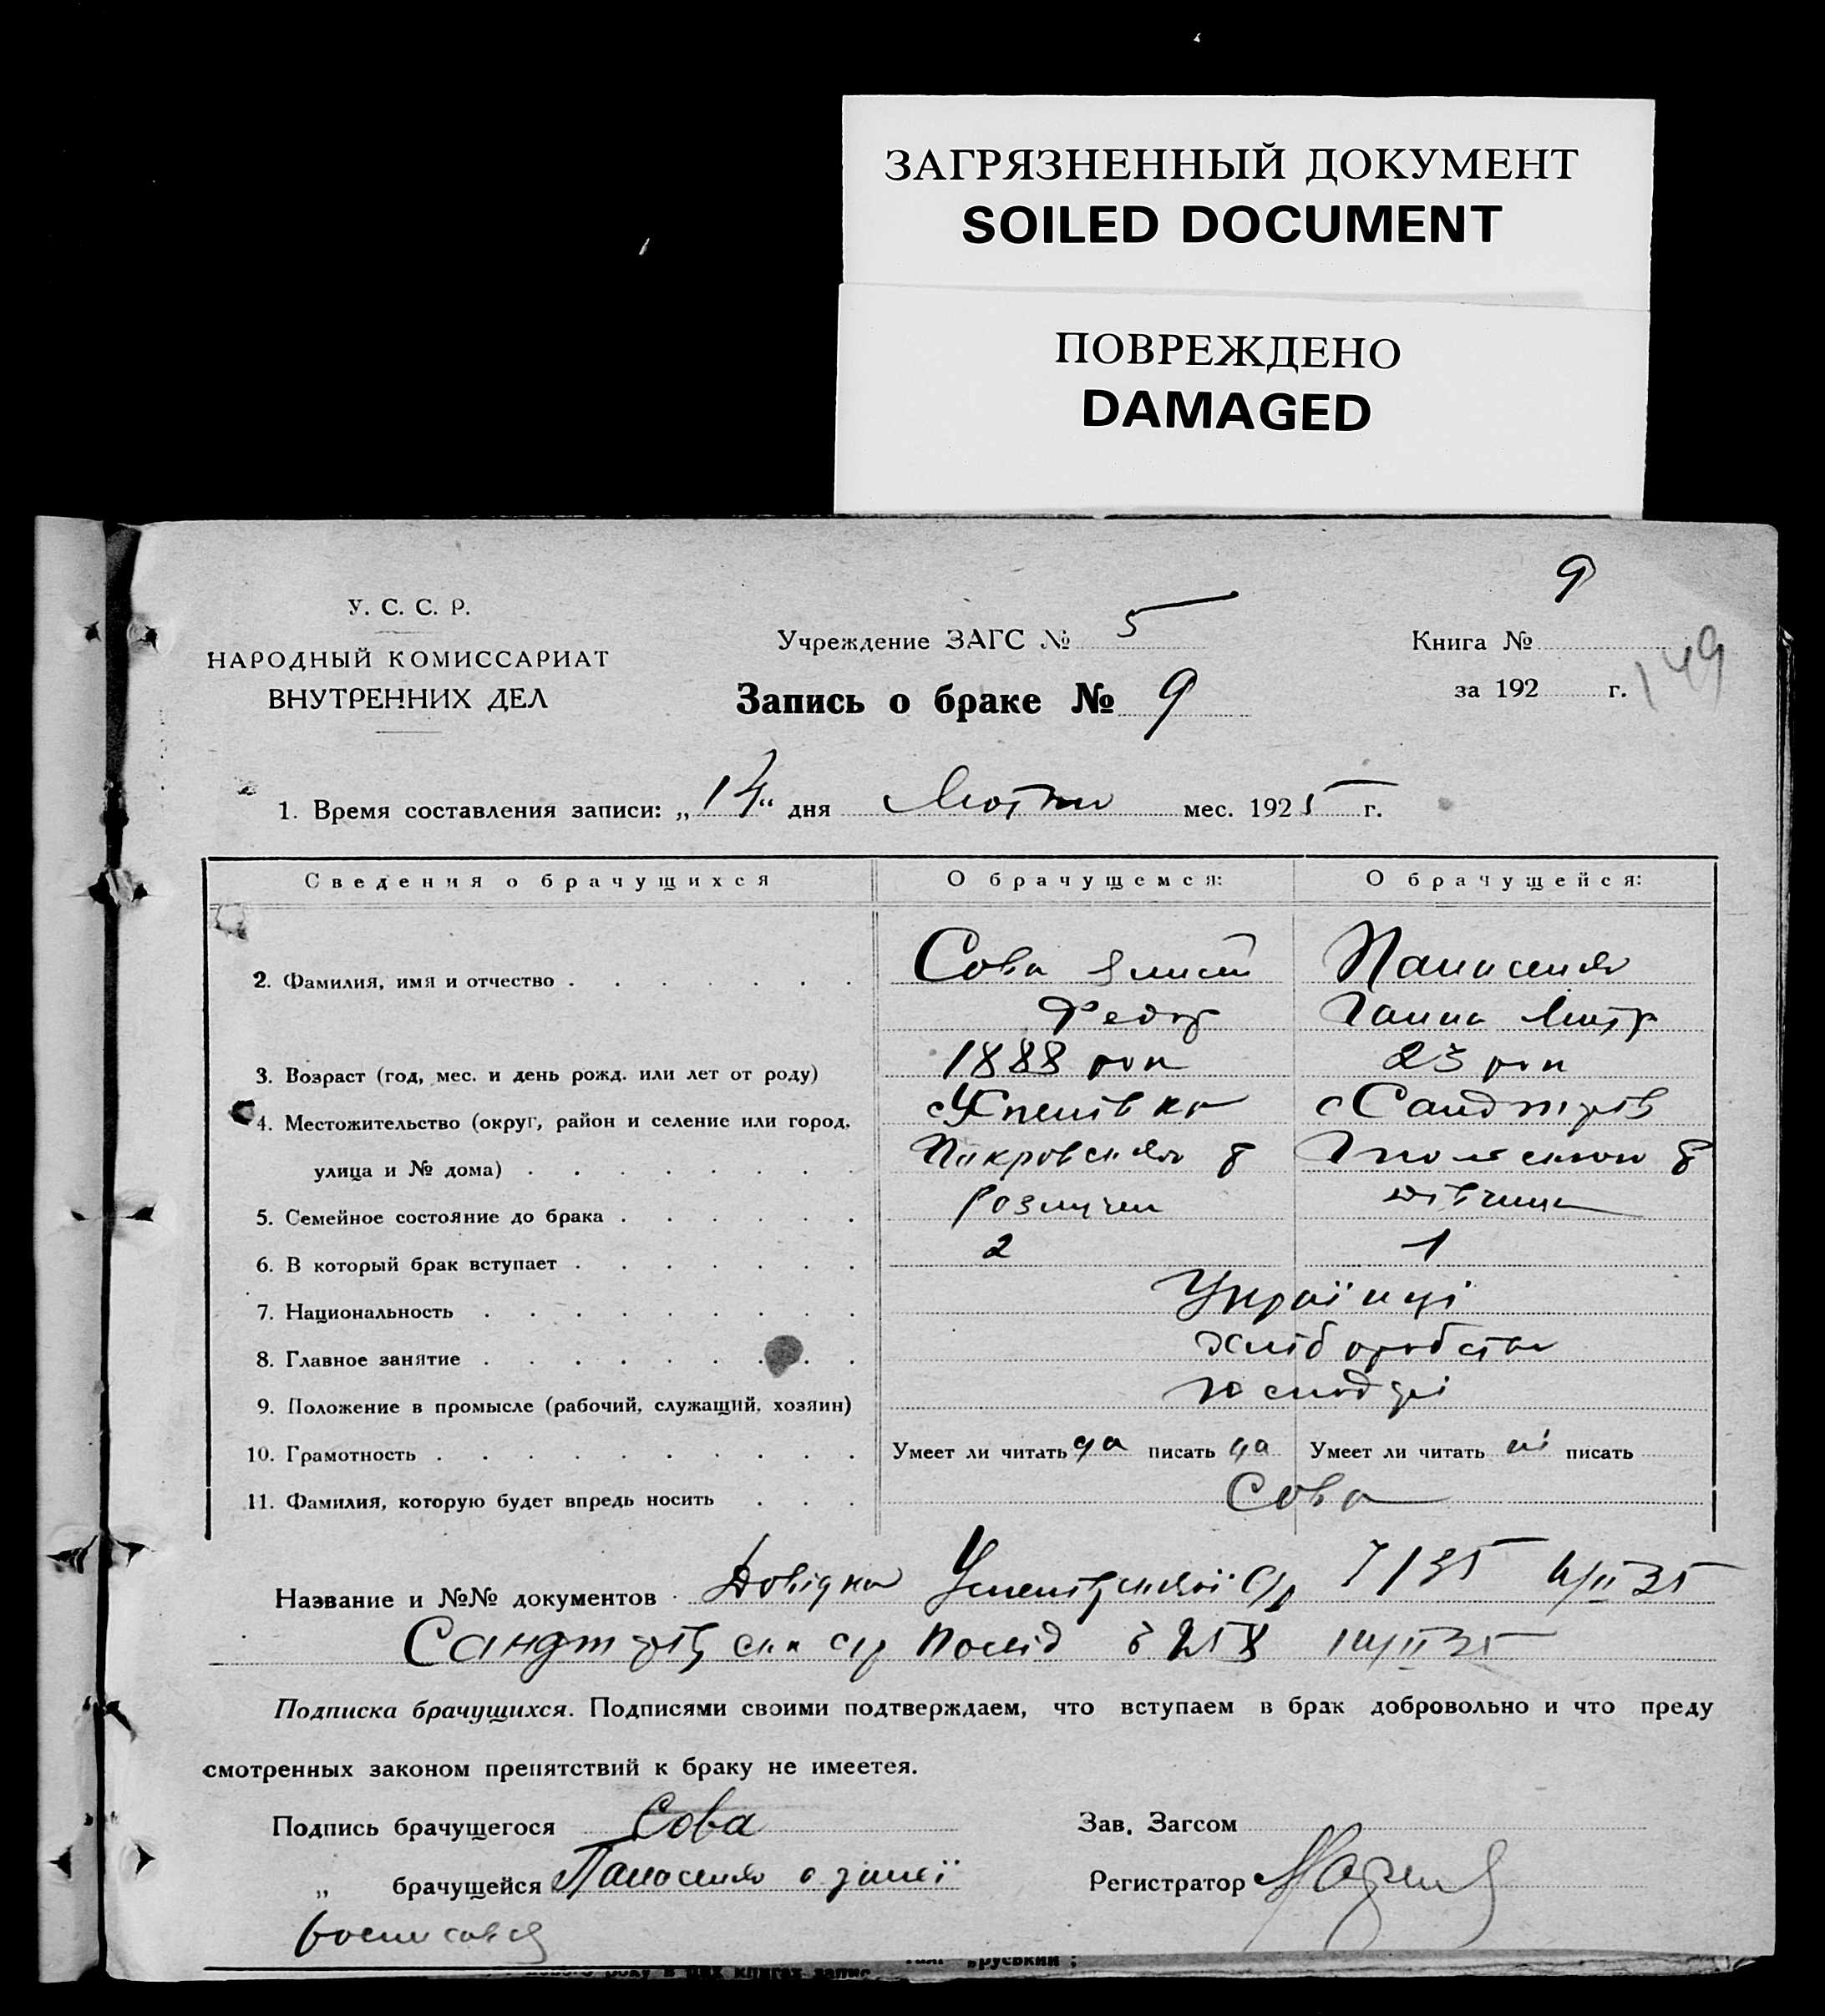 ЗАГРЯЗНЕННЫЙ ДОКУМЕНТ
SOILED DOCUMENT
ПОВРЕЖДЕНО
DAMAGED
9
У. С. С. Р.
НАРОДНЫЙ КОМИССАРИАТ
ВНУТРЕННИХ ДЕЛ
Учреждение ЗАГС № 5
Запись о браке № 9
Книга №
за 192 г.
149
1. Время составления записи: „14“ дня Лютого мес. 1925 г.
Сведения о брачущихся О брачущемся: О брачущейся:
2. Фамилия, имя и отчество Сова Панасенко
Федор Ганна Митр
3. Возраст (год, мес. и день рожд. или лет от роду) 1888 рок 23 рок
4. Местожительство (округ, район и селение или город, с Успенівка с
улица и № дома) Покровського р
5. Семейное состояние до брака розлучен дівчина
6. В который брак вступает 2 1
7. Национальность Українці
8. Главное занятие хліборобство
9. Положение в промысле (рабочий, служащий, хозяин) господарі
10. Грамотность Умеет ли читать да писать да Умеет ли читать ні писать
11. Фамилия, которую будет впредь носить Сова
Название и №№ документов Довідка Успенівської с/р 4/II 35
14/II 35
Подписка брачущихся. Подписями своими подтверждаем, что вступаем в брак добровольно и что преду
смотренных законом препятствий к браку не имеетея.
Подпись брачущегося Сова
Зав. Загсом
„ брачущейся Панасенко а за неї
Регистратор
росписався